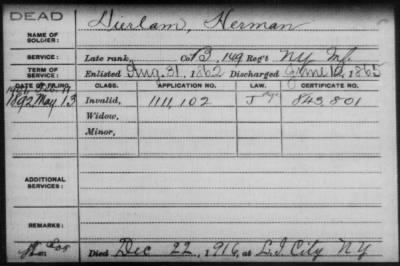 DEAD
NAME OF SOLDIER: Dierlam, Herman
SERVICE: Late rank, Co. B, 149 Reg't NY Inf.
TERM OF SERVICE: Enlisted Aug. 31, 1862 Discharged June 12, 1865
DATE OF FILING. CLASS. APPLICATION NO. LAW. CERTIFICATE NO.
1892 May 13 Invalid, 1111,102 843,801
Widow,
Minor,
ADDITIONAL SERVICES:
REMARKS:
Died Dec 22, 1916, at L.I. City NY